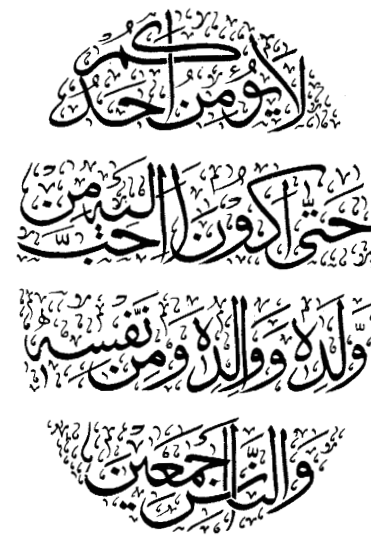 لا يؤمن أحدكم
حتى أكون أحب إليه من
ولده ووالده ومن نفسه
والناس أجمعين